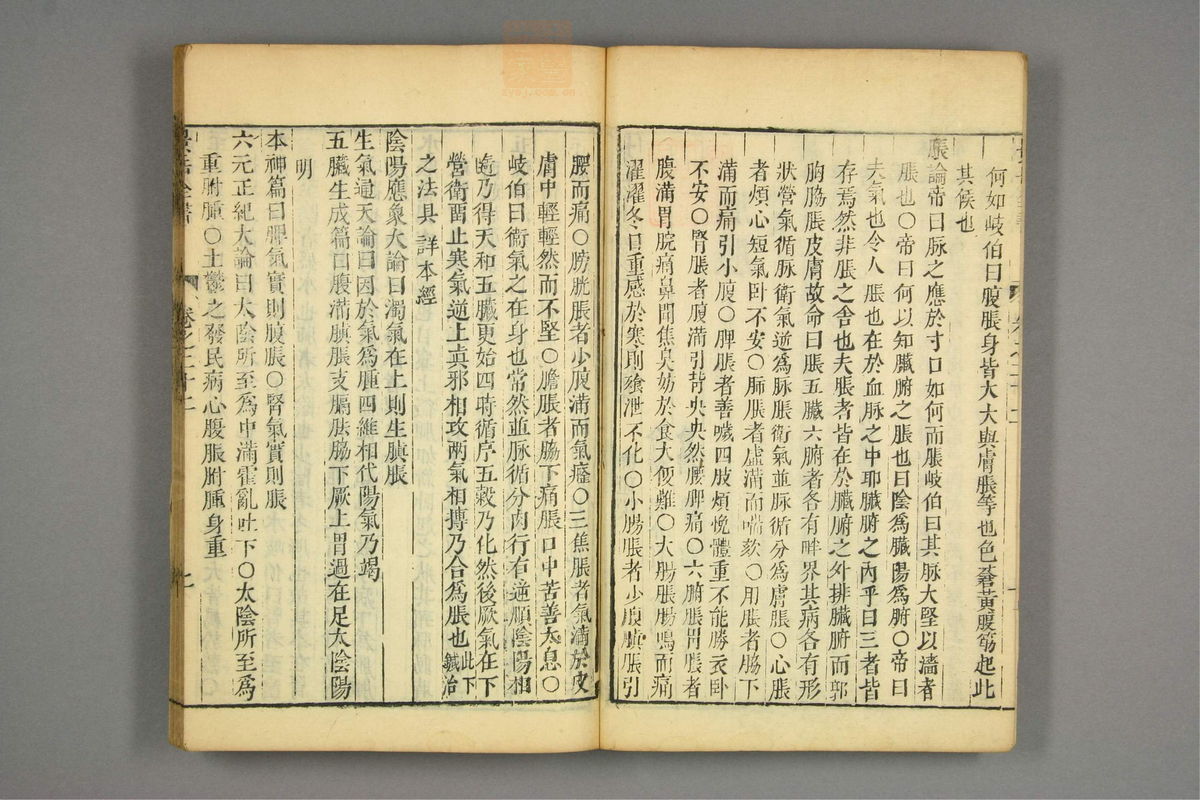 何如岐伯曰腹脹身皆大大與膚脹等也色蒼黃腹筋起此
其候也
脹論帝曰脉之應於寸口如何而脹岐伯曰其脉大堅以濇者
脹也○帝曰何以知臟腑之脹也曰陰爲臟陽爲腑○帝曰
夫氣也令人 脹也在於血脉之中耶臟腑之內乎曰三者皆
存焉然非脹之舍也夫脹者皆在於臟腑之外排臟腑而郭
胸脇脹皮膚故命曰脹五臟六腑者各有畔界其病各有形
狀營氣循脉衛氣逆爲脉脹衛氣並脉循分爲膚脹○心脹
者煩心短氣卧不安○肺脹者虛滿而喘欬○肝脹者脇下
滿而痛引小腹○脾脹者善噦四肢煩悗體重不能勝衣卧
不安○腎脹者腹滿引背央央然腰髀痛○六腑脹胃脹者
腹滿胃脘痛鼻聞焦臭妨於食大便難○大腸脹腸鳴而痛
濯濯冬日重感於寒則飱泄不化○小腸脹者少腹䐜脹引
腰而痛○膀胱脹者少腹滿而氣癃○三焦脹者氣滿於皮
膚中輕輕然而不堅○膽脹者脇下痛脹口中苦善太息○
岐伯曰衛氣之在身也常然並脉循分肉行有逆順陰陽相
隨乃得天和五臟更始四時循序五穀乃化然後厥氣在下
營衛畱止寒氣逆上真邪相攻兩氣相搏乃合爲脹也此下鍼治
之法具詳本經
陰陽應象大論曰濁氣在上則生䐜脹
生氣通天論曰因於氣爲腫四維相代陽氣乃竭
五臟生成篇曰腹滿䐜脹支膈胠脇下厥上冒過在足太陰陽
明
本神篇曰脾氣實則腹脹○腎氣實則脹
六元正紀大論曰太陰所至爲中滿霍亂吐下○太陰所至爲
重胕腫○土鬱之發民病心腹脹胕腫身重
卷之二十二